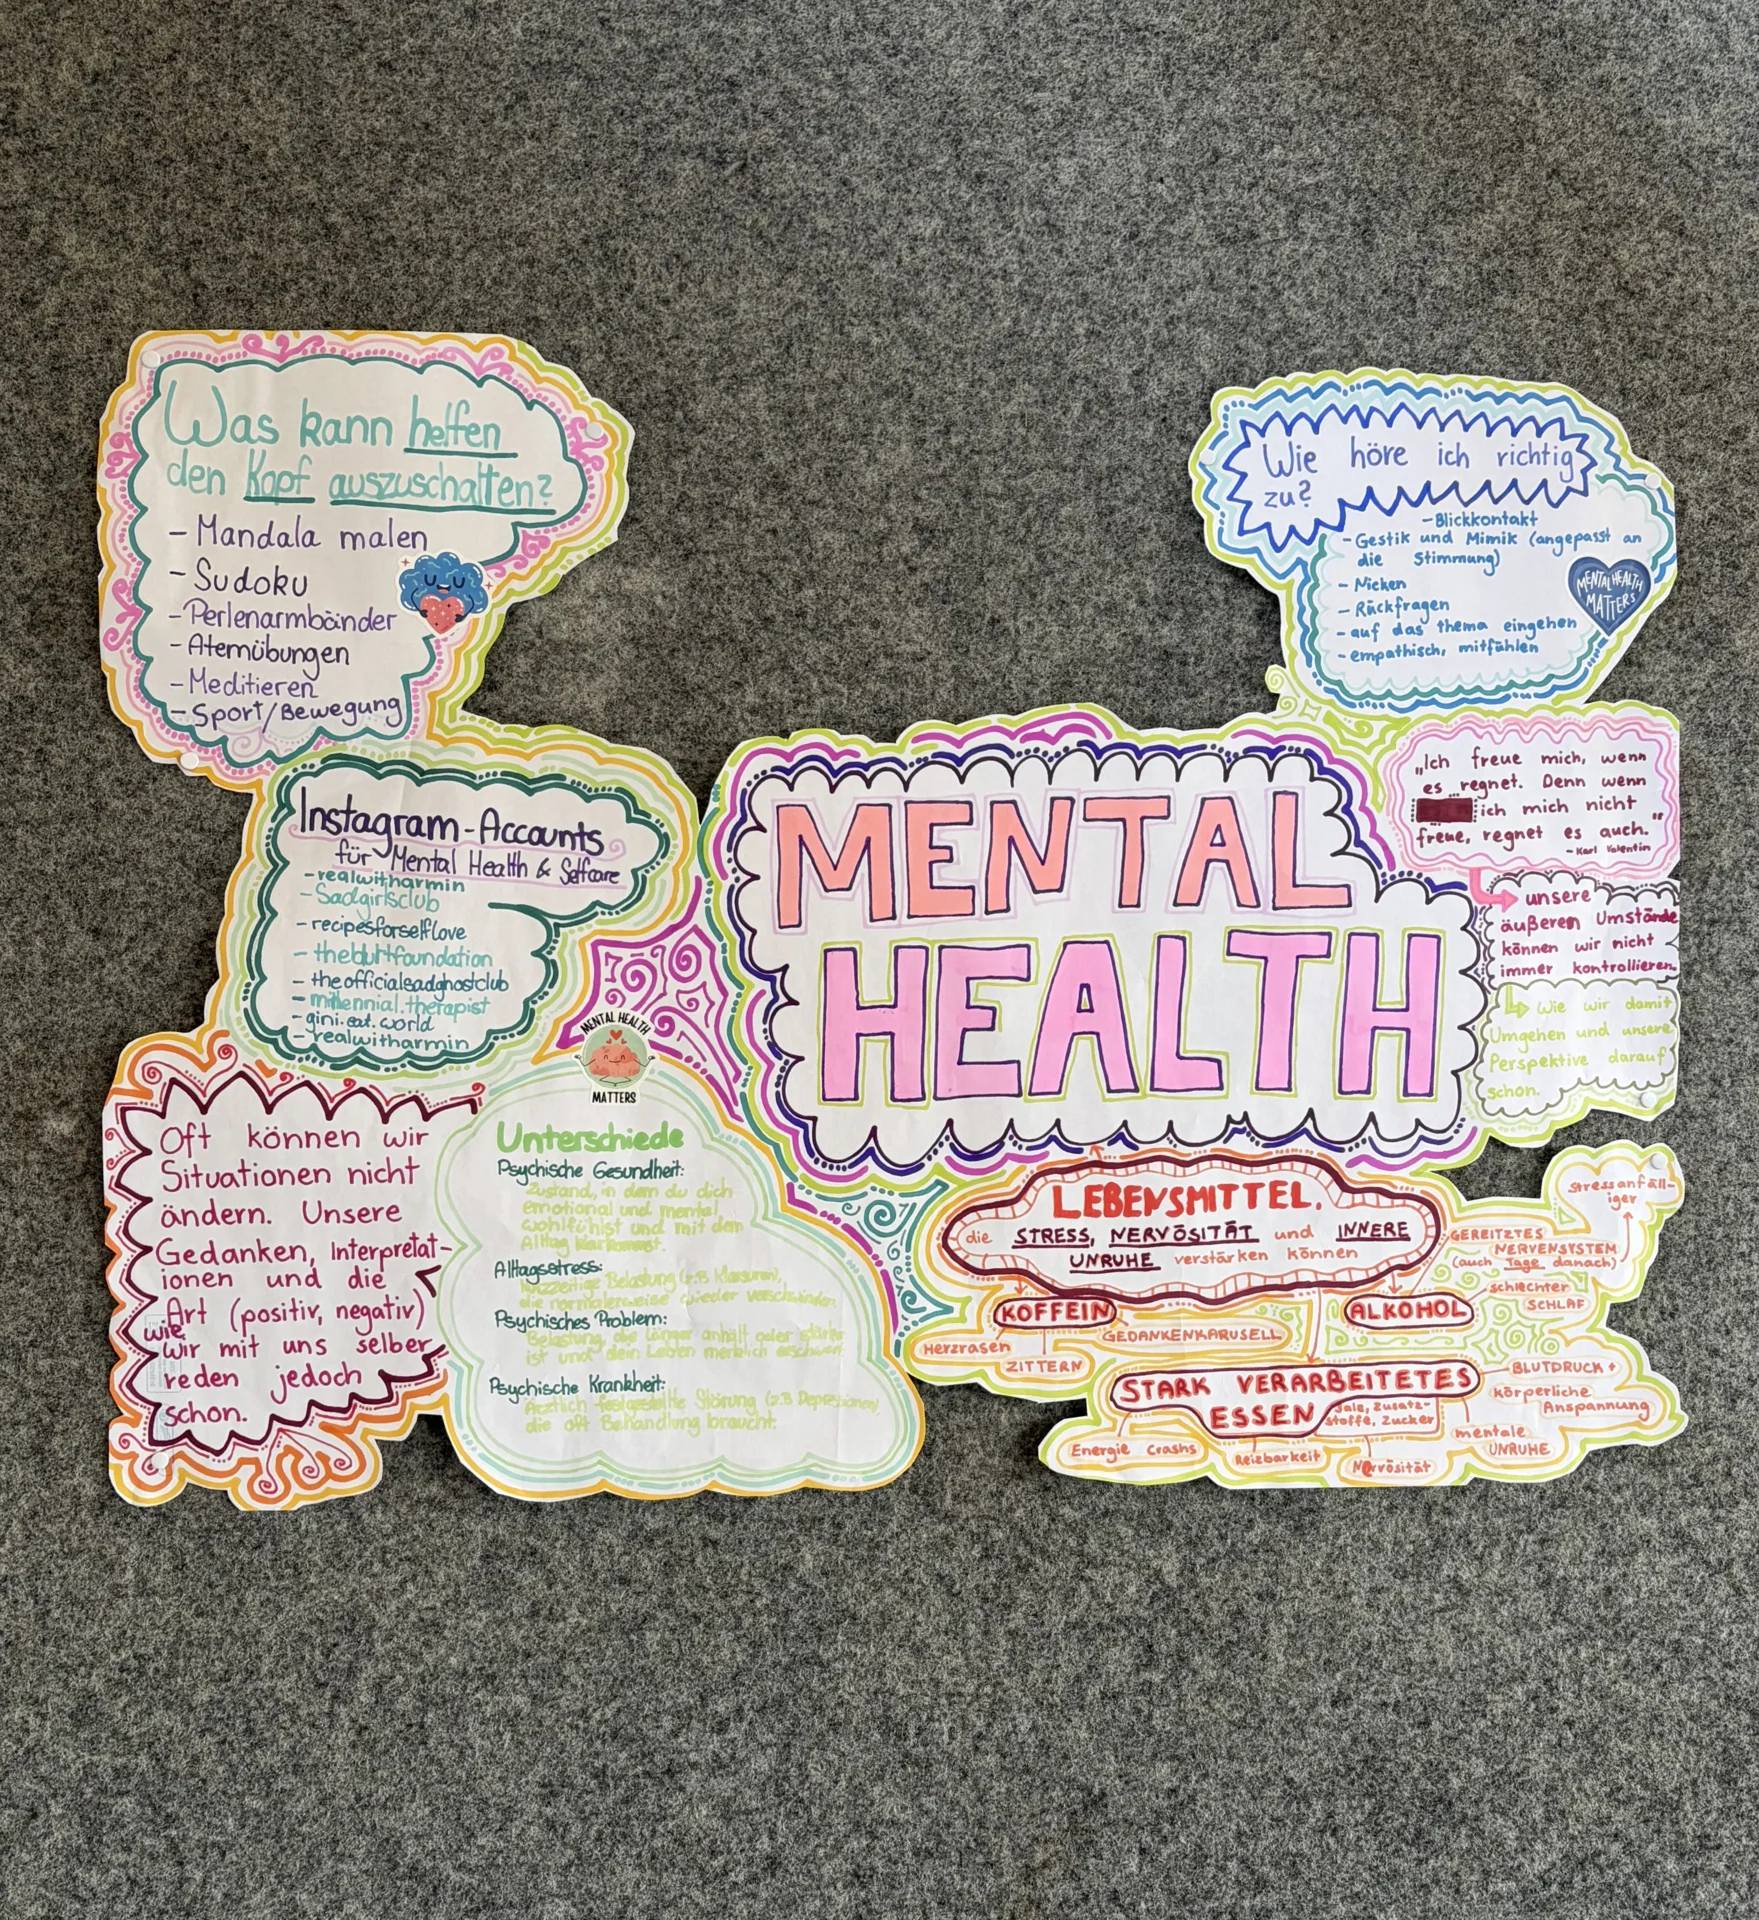 Was kann helfen
den Kopf auszuschalten?
- Mandala malen
- Sudoku
- Perlenarmbänder
- Atemübungen
- Meditieren
- Sport/Bewegung
Instagram-Accounts
für Mental Health & Selfcare
- realwitharmin
- Sadgirlsclub
- recipesforselflove
- theblurtfoundation
- theofficialsadghostclub
- millennial.therapist
- gini.eat.world
- realwitharmin
Oft können wir
Situationen nicht
ändern. Unsere
Gedanken, Interpretat-
ionen und die
Art (positiv, negativ)
wie
wir mit uns selber
reden jedoch
schon.
MENTAL HEALTH
MATTERS
Unterschiede
Psychische Gesundheit:
Zustand, in dem du dich
emotional und mental
wohlfühlst und mit dem
Alltag klarkommst.
Alltagsstress:
kurzzeitige Belastung (z.B Klausuren),
die normalerweise wieder verschwinden.
Psychisches Problem:
Belastung, die länger anhält oder stärker
ist und dein Leben merklich erschwert
Psychische Krankheit:
Ärztlich festgestellte Störung (z.B Depressionen),
die oft Behandlung braucht.
MENTAL
HEALTH
Wie höre ich richtig
zu?
- Blickkontakt
- Gestik und Mimik (angepasst an
die Stimmung)
- Nicken
- Rückfragen
- auf das Thema eingehen
- empathisch, mitfühlen
MENTAL HEALTH
MATTERS
„Ich freue mich, wenn
es regnet. Denn wenn
ich mich nicht
freue, regnet es auch."
- Karl Valentin
unsere
äußeren Umstände
können wir nicht
immer kontrollieren.
Wie wir damit
Umgehen und unsere
Perspektive darauf
schon.
LEBENSMITTEL,
die STRESS, NERVÖSITÄT und INNERE
UNRUHE verstärken können
KOFFEIN
Herzrasen
ZITTERN
GEDANKENKARUSELL
ALKOHOL
Stressanfäll-
iger
GEREIZTES
NERVENSYSTEM
(auch Tage danach)
schlechter
SCHLAF
STARK VERARBEITETES
ESSEN
Salz, Zusatz-
stoffe, Zucker
Energie Crashs
Reizbarkeit
Nervösität
mentale
UNRUHE
BLUTDRUCK +
körperliche
Anspannung